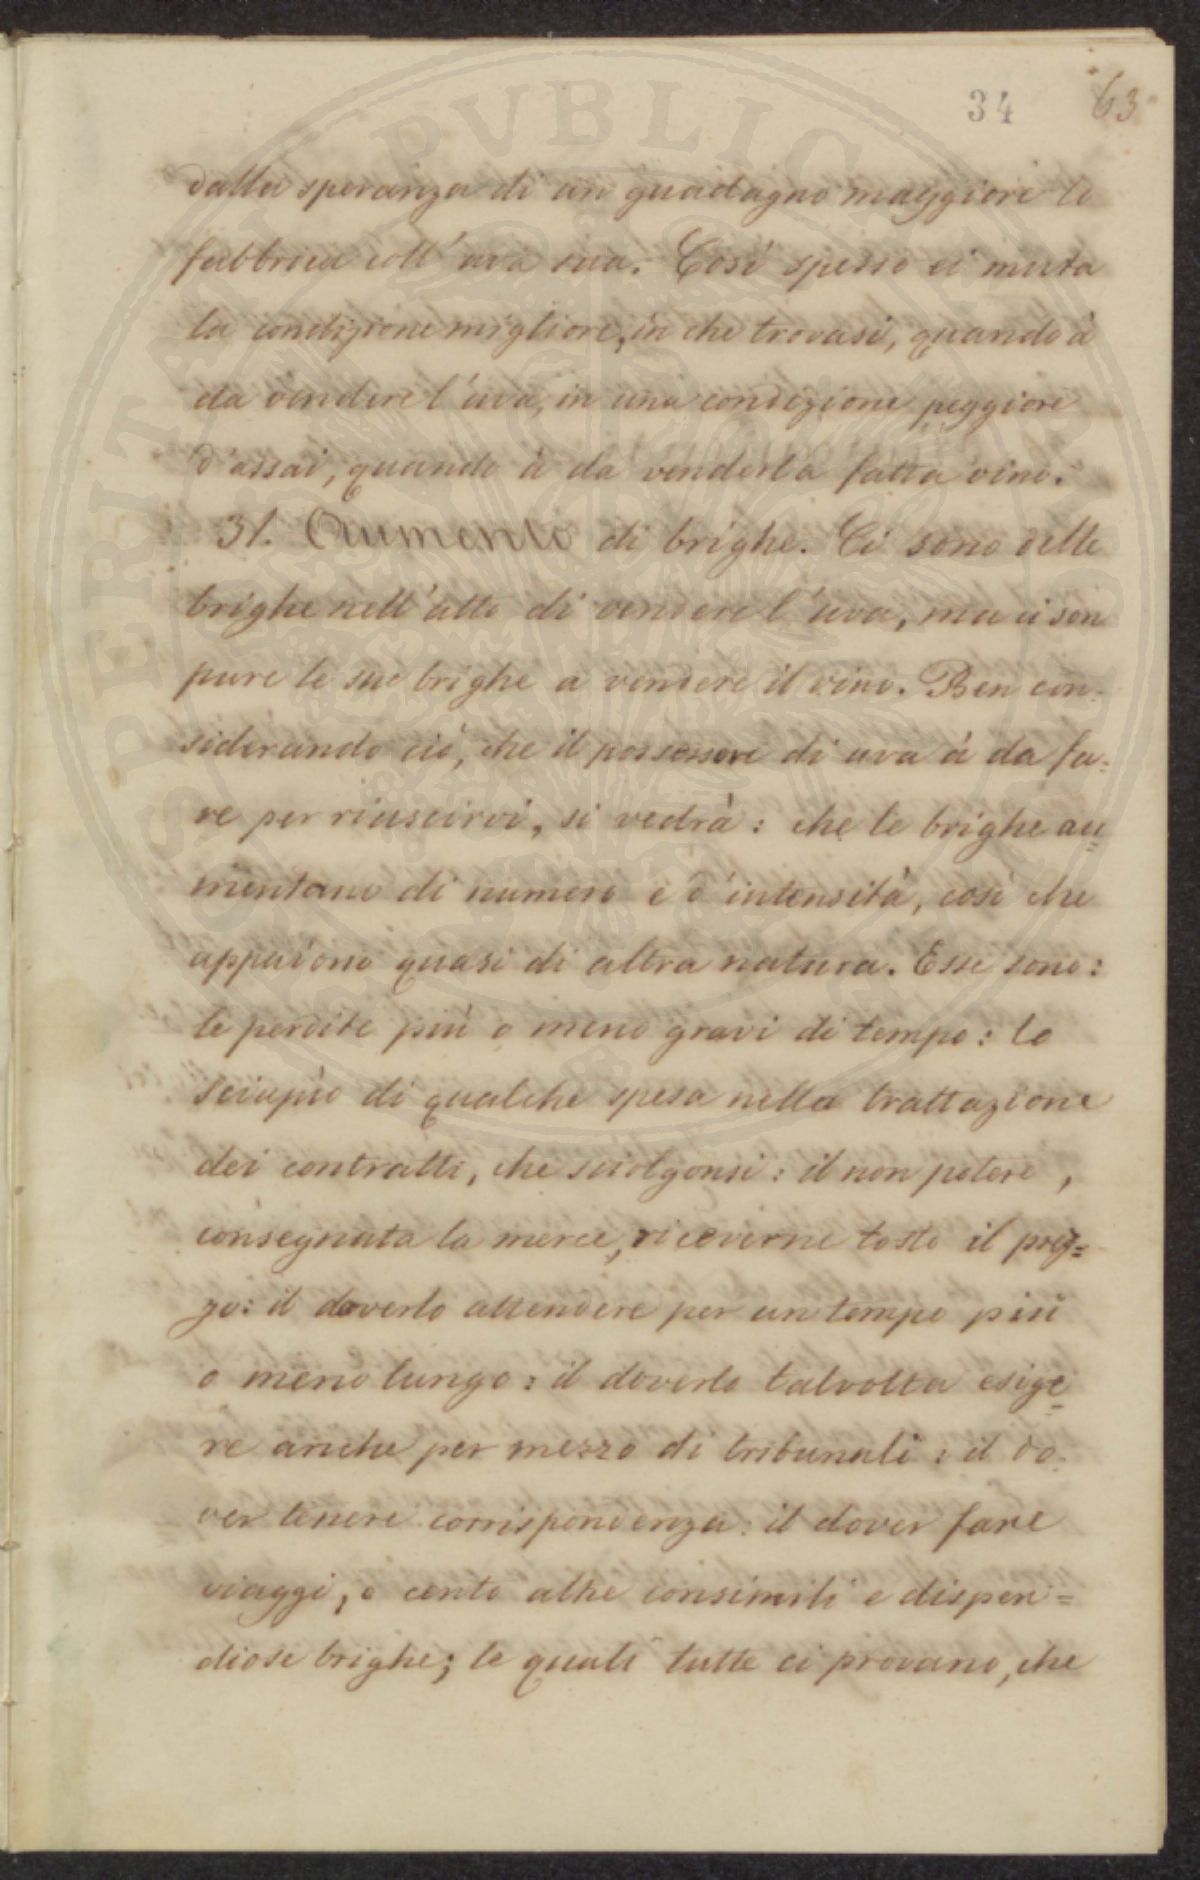 34 63
dalla speranza di un guadagno maggiore lo
fabbrica coll' uva sua. Così spesso ei muta
la condizione migliore, in che trovasi, quando à
da vendere l'uva, in una condizione peggiore
d'assai, quando à da venderla fatta vino.
31. Aumento di brighe. Ci sono delle
brighe nell'atto di vendere l'uva, ma ci son
pure le sue brighe a vendere il vino. Ben con-
siderando ciò, che il possessore di uva à da fa-
re per riuscirvi, si vedrà: che le brighe au
mentano di numero e d'intensità, così che
appaiono quasi di altra natura. Esse sono:
le perdite più o meno gravi di tempo: lo
sciupìo di qualche spesa nella trattazione
dei contratti, che sciolgonsi: il non potere,
consegnata la merce, riceverne tosto il prez=
zo: il doverlo attendere per un tempo più
o meno lungo: il doverlo talvolta esige
re anche per mezzo di tribunali: il do-
ver tenere corrispondenza: il dover fare
viaggi, e cento altre consimili e dispen=
diose brighe; le quali tutte ci provano, che
PROSPERITATI PVBLICAE